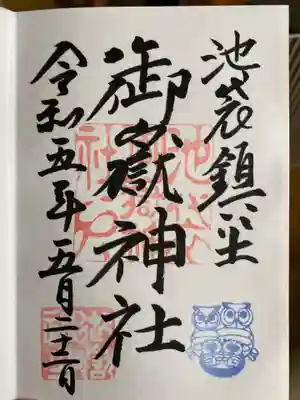 池袋鎮座
御嶽神社
令和五年五月二十二日